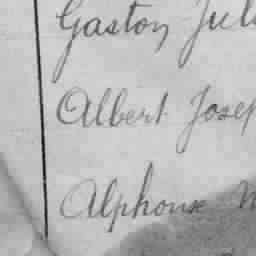 Gaston Jul
Albert Josep
Alphonse M